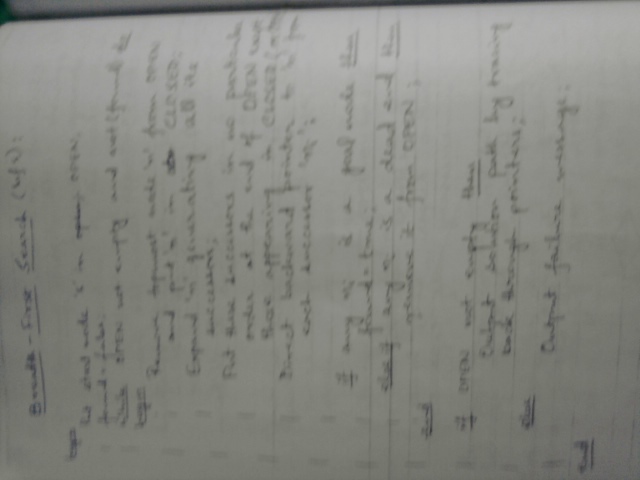 Breadth-First Search (BFS):
begin
Put start node 's' in OPEN;
found = false;
while OPEN not empty and not (found) do
begin
Remove topmost node 'n' from OPEN
and put 'n' in CLOSED;
Expand 'n' generating all its
successors;
Put these successors in no particular
order at the end of OPEN except
those appearing in CLOSED
Direct backward pointer to 'n' from
each successor
if any is a goal node then
found = true;
else if any is a dead end then
remove it from OPEN;
end
if OPEN not empty then
Output solution path by tracing
back through pointers;
else
Output failure message;
end